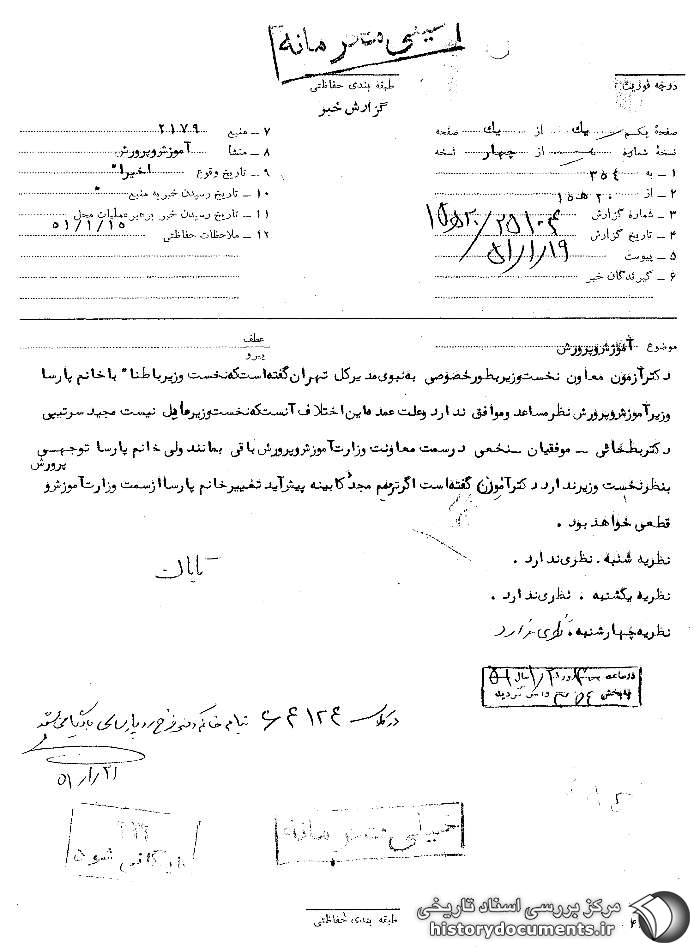 خیلی محرمانه
طبقه بندی حفاظتی
درجه فوریت
گزارش خبر
صفحهٔ یکم یک از یک صفحه
نسخهٔ شماره از چهار نسخه
۱ ـ به ۳۵۴
۲ ـ از ۲۰ ه‍ ۱۵
۳ ـ شمارهٔ گزارش
۴ ـ تاریخ گزارش ۵۱/۱/۱۹
۵ ـ پیوست
۶ ـ گیرندگان خبر
۷ ـ منبع ۲۱۷۹
۸ ـ منشأ آموزش و پرورش
۹ ـ تاریخ وقوع اخیرا"
۱۰ ـ تاریخ رسیدن خبر به منبع "
۱۱ ـ تاریخ رسیدن خبر برهبر عملیات محل ۵۱/۱/۱۵
۱۲ ـ ملاحظات حفاظتی
موضوع آموزش و پرورش
عطف
پیرو
دکتر آزمون معاون نخست وزیر بطور خصوصی به نبوی مدیر کل تهران گفته است که نخست وزیر باطنا" با خانم پارسا
وزیر آموزش و پرورش نظر مساعد و موافق ندارد و علت عمده این اختلاف آنست که نخست وزیر مایل نیست مجید سرتیپی
دکتر بطحائی ـ موفقیان ـ نخعی در سمت معاونت وزارت آموزش و پرورش باقی بمانند ولی خانم پارسا توجهی
بنظر نخست وزیر ندارد دکتر آموزن گفته است اگر ترمیم مجدد کابینه پیش آید تغییر خانم پارسا از سمت وزارت آموزش و پرورش
قطعی خواهد بود .
نظریه شنبه . نظری ندارد .
نظریه یکشنبه . نظری ندارد .
نظریه چهارشنبه . نظری ندارد
در ساعت روز سال ۵۱
به بخش واصل گردید
در کلاسه بنام خانم فرخ رو پارسای بایگانی شود
۵۱/۱/۲۱
خیلی محرمانه
بایگانی شود
طبقه بندی حفاظتی
مرکز بررسی اسناد تاریخی
historydocuments.ir